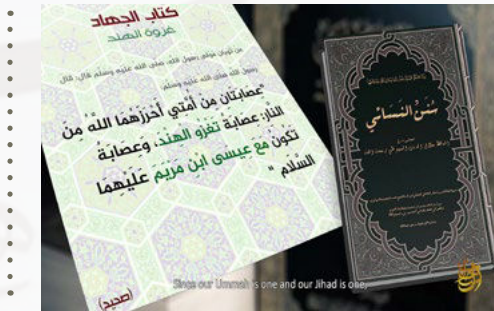 كتاب الجهاد
غزوة الهند
عن ثوبان مولى رسول الله صلى الله عليه وسلم قال: قال
رسول الله صلى الله عليه وسلم
"عصابتان من أمتي أحرزهما الله من
النار: عصابة تغزو الهند، وعصابة
تكون مع عيسى ابن مريم عليهما
السلام"
(صحيح)
سنن النسائي
Since our Ummah is one and our Jihad is one,